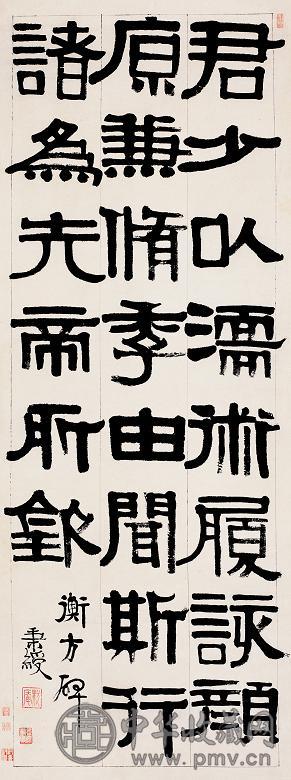 君少以濡術履該顏
原兼脩季由聞斯行
諸為先帝所欽
衡方碑
秉綬
中华收藏网
www.pmv.cn